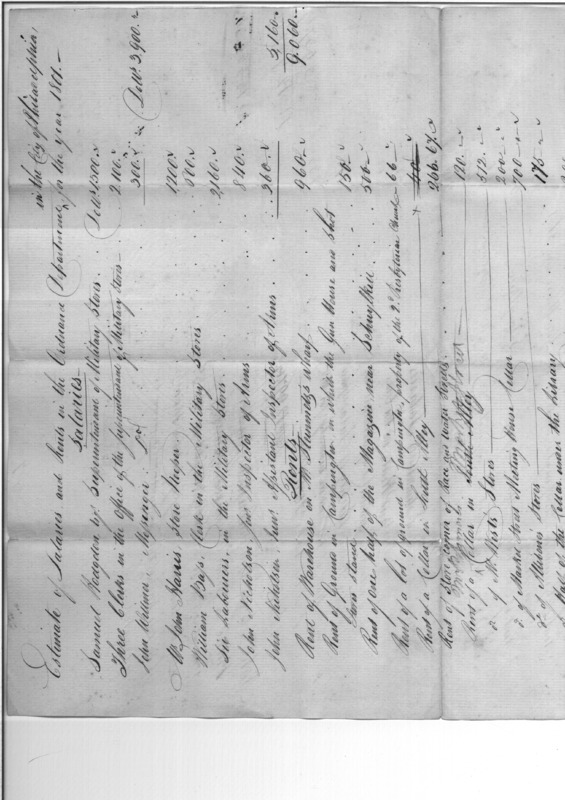 Estimate of Salaries and Rents in the Ordnance Department in the City of Philadelphia, for the year 1801.
Salaries
Samuel Hodgdon by Superintendant of Military Stores. Dolls 1500.
Three Clerks in the Office of the Superintendant of Military Stores 2.100.
John Williams Messenger do 300. Dolls 3,900.
John Harris Store Keeper 1200
William Clerk in the Military Stores 500.
Six Labourers in the Military Stores 2,160.
John Nicholson Inspector of Arms 840.
John Nicholson Junr Assistant Inspector of Arms 360. 5,160.
9,060.
Rents
Rent of Warehouse on wharf 960.
Rent of Ground in Campington on which the Gun House and Shot
stand 150.
Rent of one half of the Magazine near Schuylkill 500.
Rent of a lot of ground in Campington, property of the 2d Presbyterian Church 66
Rent of a Cellar in Alley 266.67.
Rent of Store corner of Race and Water Streets 120.
Rent of a Cellar in Alley 512.
do of Mr Wests Stores 200
do of Market Street Meeting House Cellar 700
do of Stores 175
Half of the Cellar under the Library